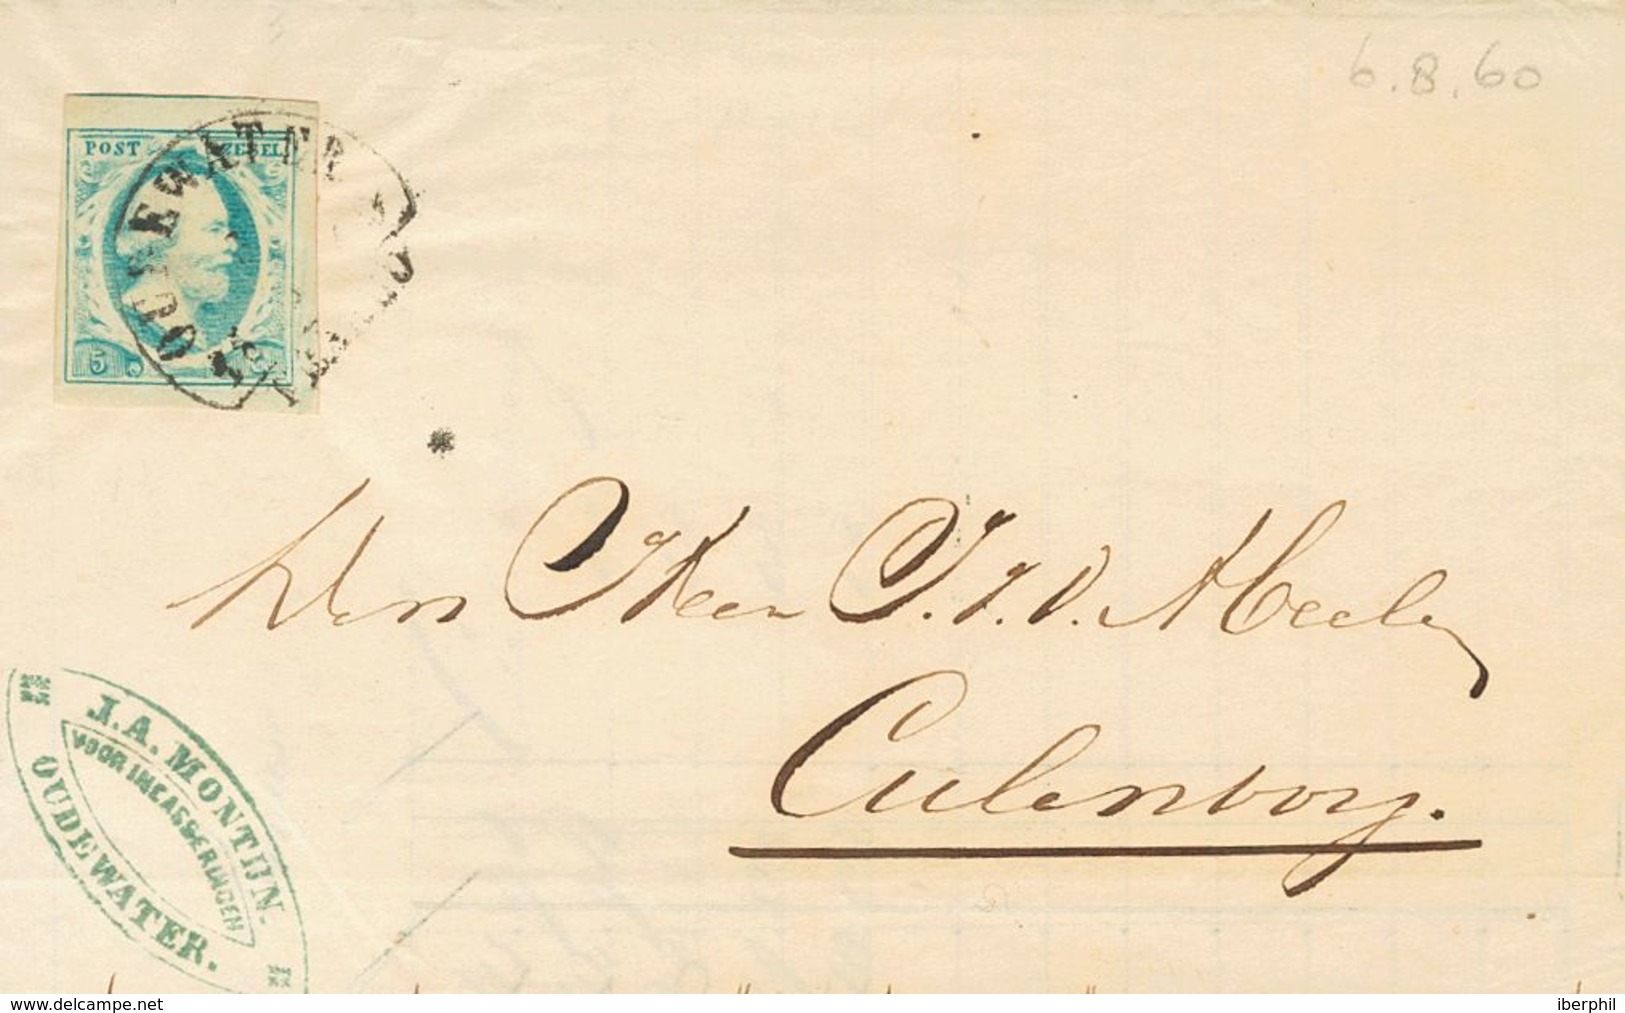 6.8.60
POST ZEGEL
OUDEWATER
5 C
Den Heer
Culenborg.
J. A. MONTIJN.
VOOR INCASSEERINGEN
OUDEWATER.
www.delcampe.net
iberphil